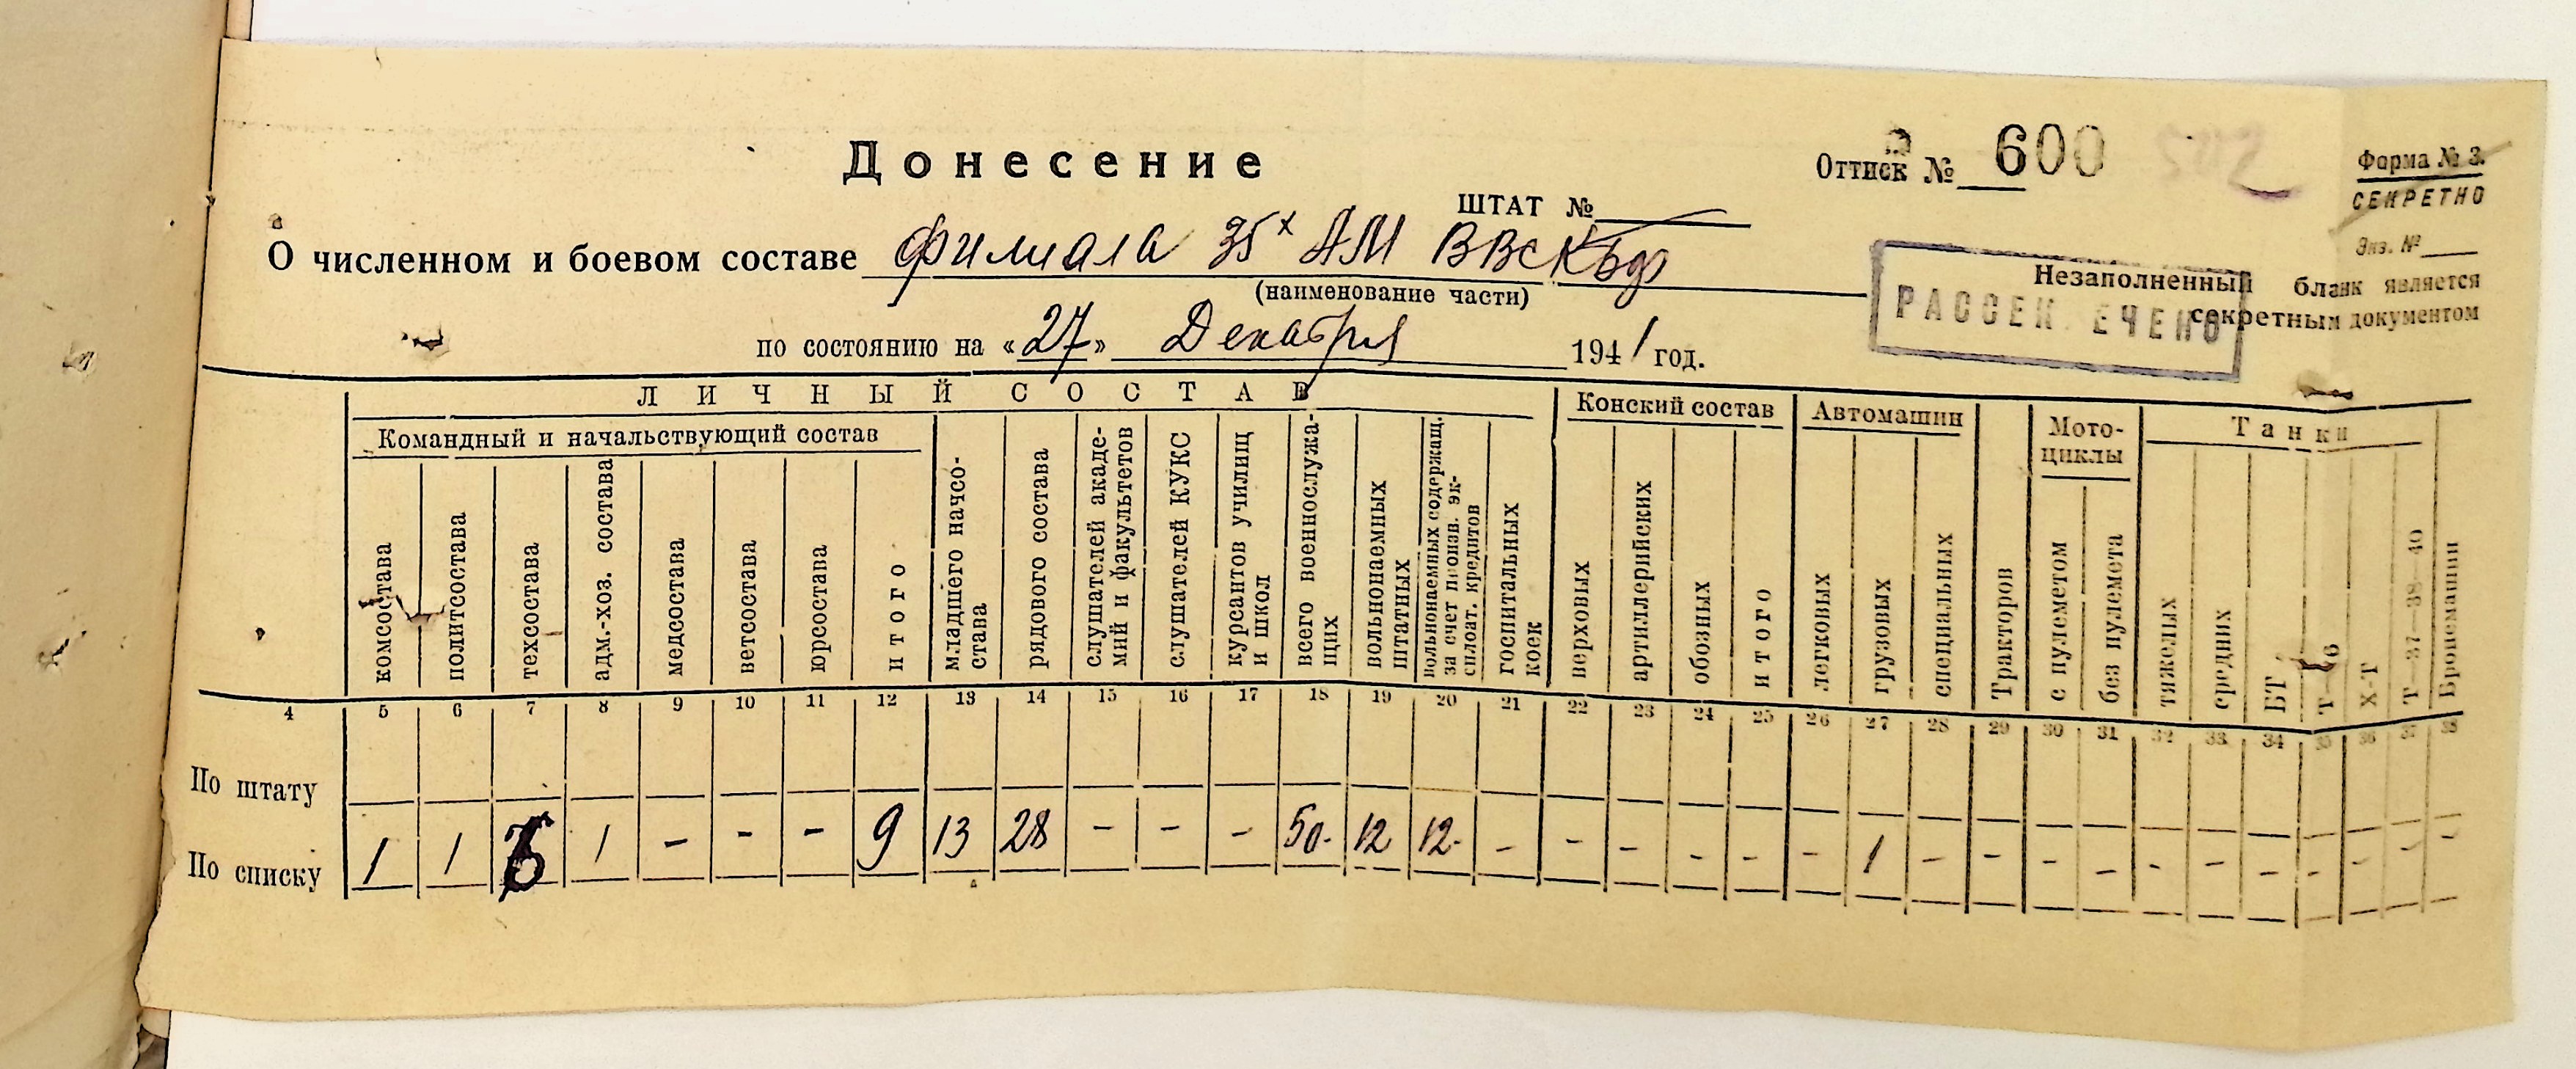 Донесение
Оттиск № 600
Форма № 3.
СЕКРЕТНО
Экз. №
ШТАТ №
О численном и боевом составе Филиала 35х АМ ВВС КБФ
(наименование части)
Незаполненный бланк является
секретным документом
РАССЕК ЕЧЕНО
по состоянию на «27» Декабря 1941 год.
ЛИЧНЫЙ СОСТАВ
Конский состав
Автомашин
Мото-
циклы
Танки
Командный и начальствующий состав
комсостава
политсостава
техсостава
адм.-хоз. состава
медсостава
ветсостава
юрсостава
итого
младшего начсо-
става
рядового состава
слушателей акаде-
мий и факультетов
слушателей КУКС
курсантов училищ
и школ
всего военнослужа-
щих
вольнонаемных
штатных
вольнонаемных содержащ.
за счет произв. эк-
сплоат. кредитов
госпитальных
коек
верховых
артиллерийских
обозных
итого
легковых
грузовых
специальных
Тракторов
с пулеметом
без пулемета
тяжелых
средних
БТ
Х-Т
Т—37—38—40
Бронемашин
4 5 6 7 8 9 10 11 12 13 14 15 16 17 18 19 20 21 22 23 24 25 26 27 28 29 30 31 32 33 34 35 36 37 38
По штату
По списку 1 1 6 1 - - - 9 13 28 - - - 50. 12 12. - - - - - - 1 - - - - - - - - - - -